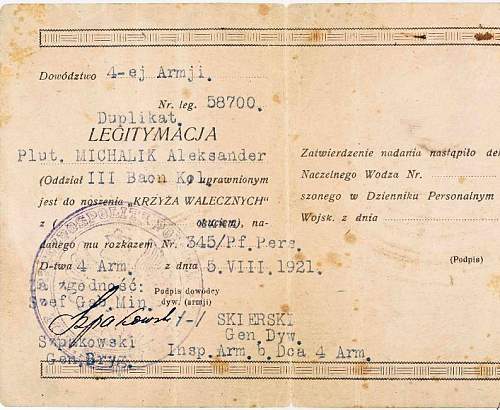 Dowództwo 4-ej Armji.
Nr. leg. 58700.
Duplikat.
LEGITYMACJA
Plut. MICHALIK Aleksander
(Oddział III Baon Kol. uprawnionym
jest do noszenia „KRZYŻA WALECZNYCH"
z ( okuciem), na-
danego mu rozkazem Nr. 345/Pf.Pers.
D-twa 4 Arm. z dnia 5.VIII.1921.
Za zgodność:
Szef Gab.Min. Podpis dowódcy
dyw. (armji)
Szpakowski /-/ SKIERSKI
Szpakowski Gen.Dyw.
Gen.Bryg. Insp.Arm. b. Dca 4 Arm.
Zatwierdzenie nadania nastąpiło de
Naczelnego Wodza Nr.
szonego w Dzienniku Personalnym
Wojsk. z dnia
(Podpis)